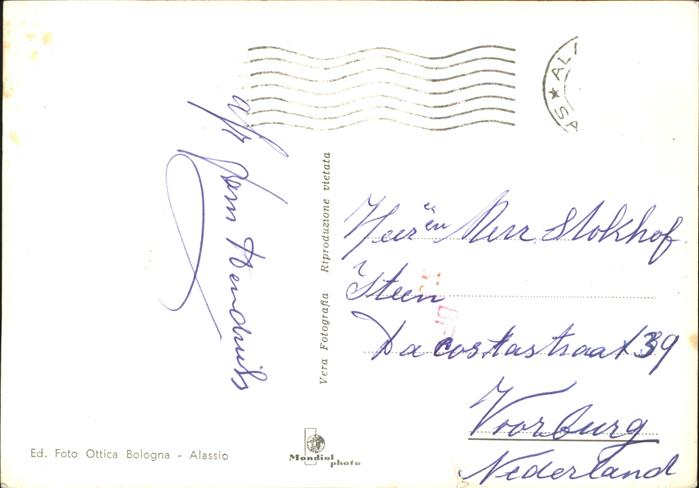 ALA
SA
afz fam Hendriks
Vera Fotografia Riproduzione vietata
Heer en Mevr Stokhof
Steen
Da costastraat 39
Voorburg
Nederland
Ed. Foto Ottica Bologna - Alassio
Mondial photo